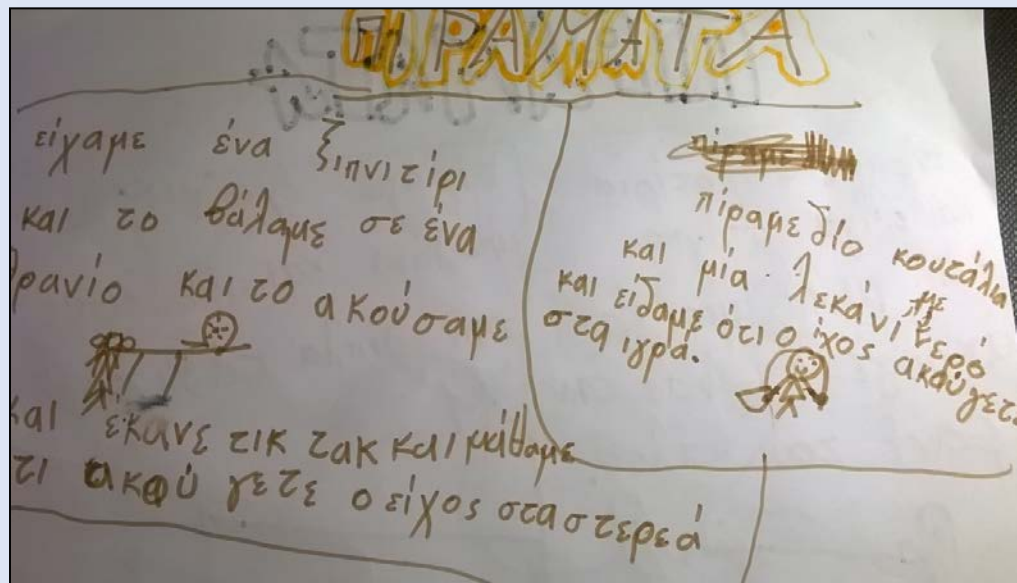 ΠΙΡΑΜΑΤΑ
είχαμε ένα ξιπνιτίρι
και το βάλαμε σε ένα
θρανίο και το ακούσαμε
και έκανε τικ τακ και μάθαμε
τι ακού γετε ο είχος στα στερεά
πίραμε
πίραμε δίο κουτάλια
και μία λεκάνι με νερό
και είδαμε ότι ο ίχος ακούγετε
στα ιγρά.